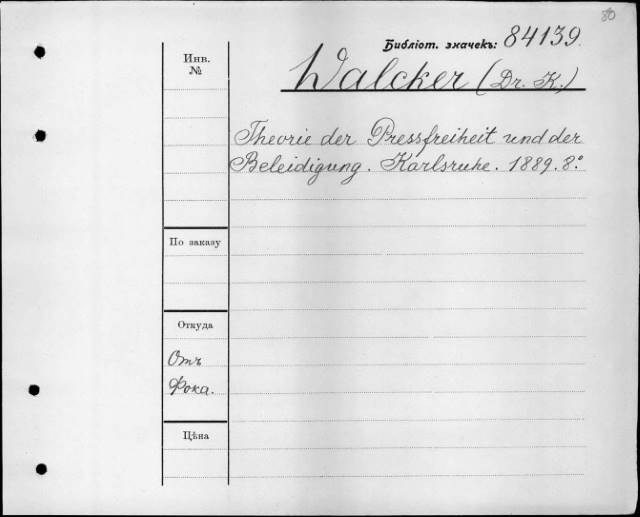 80
Библіот. значекъ: 84139.
Инв.
№
Walcker (Dr. K.)
Theorie der Pressfreiheit und der
Beleidigung. Karlsruhe. 1889. 8.°
По заказу
Откуда
Отъ
Фока.
Цѣна